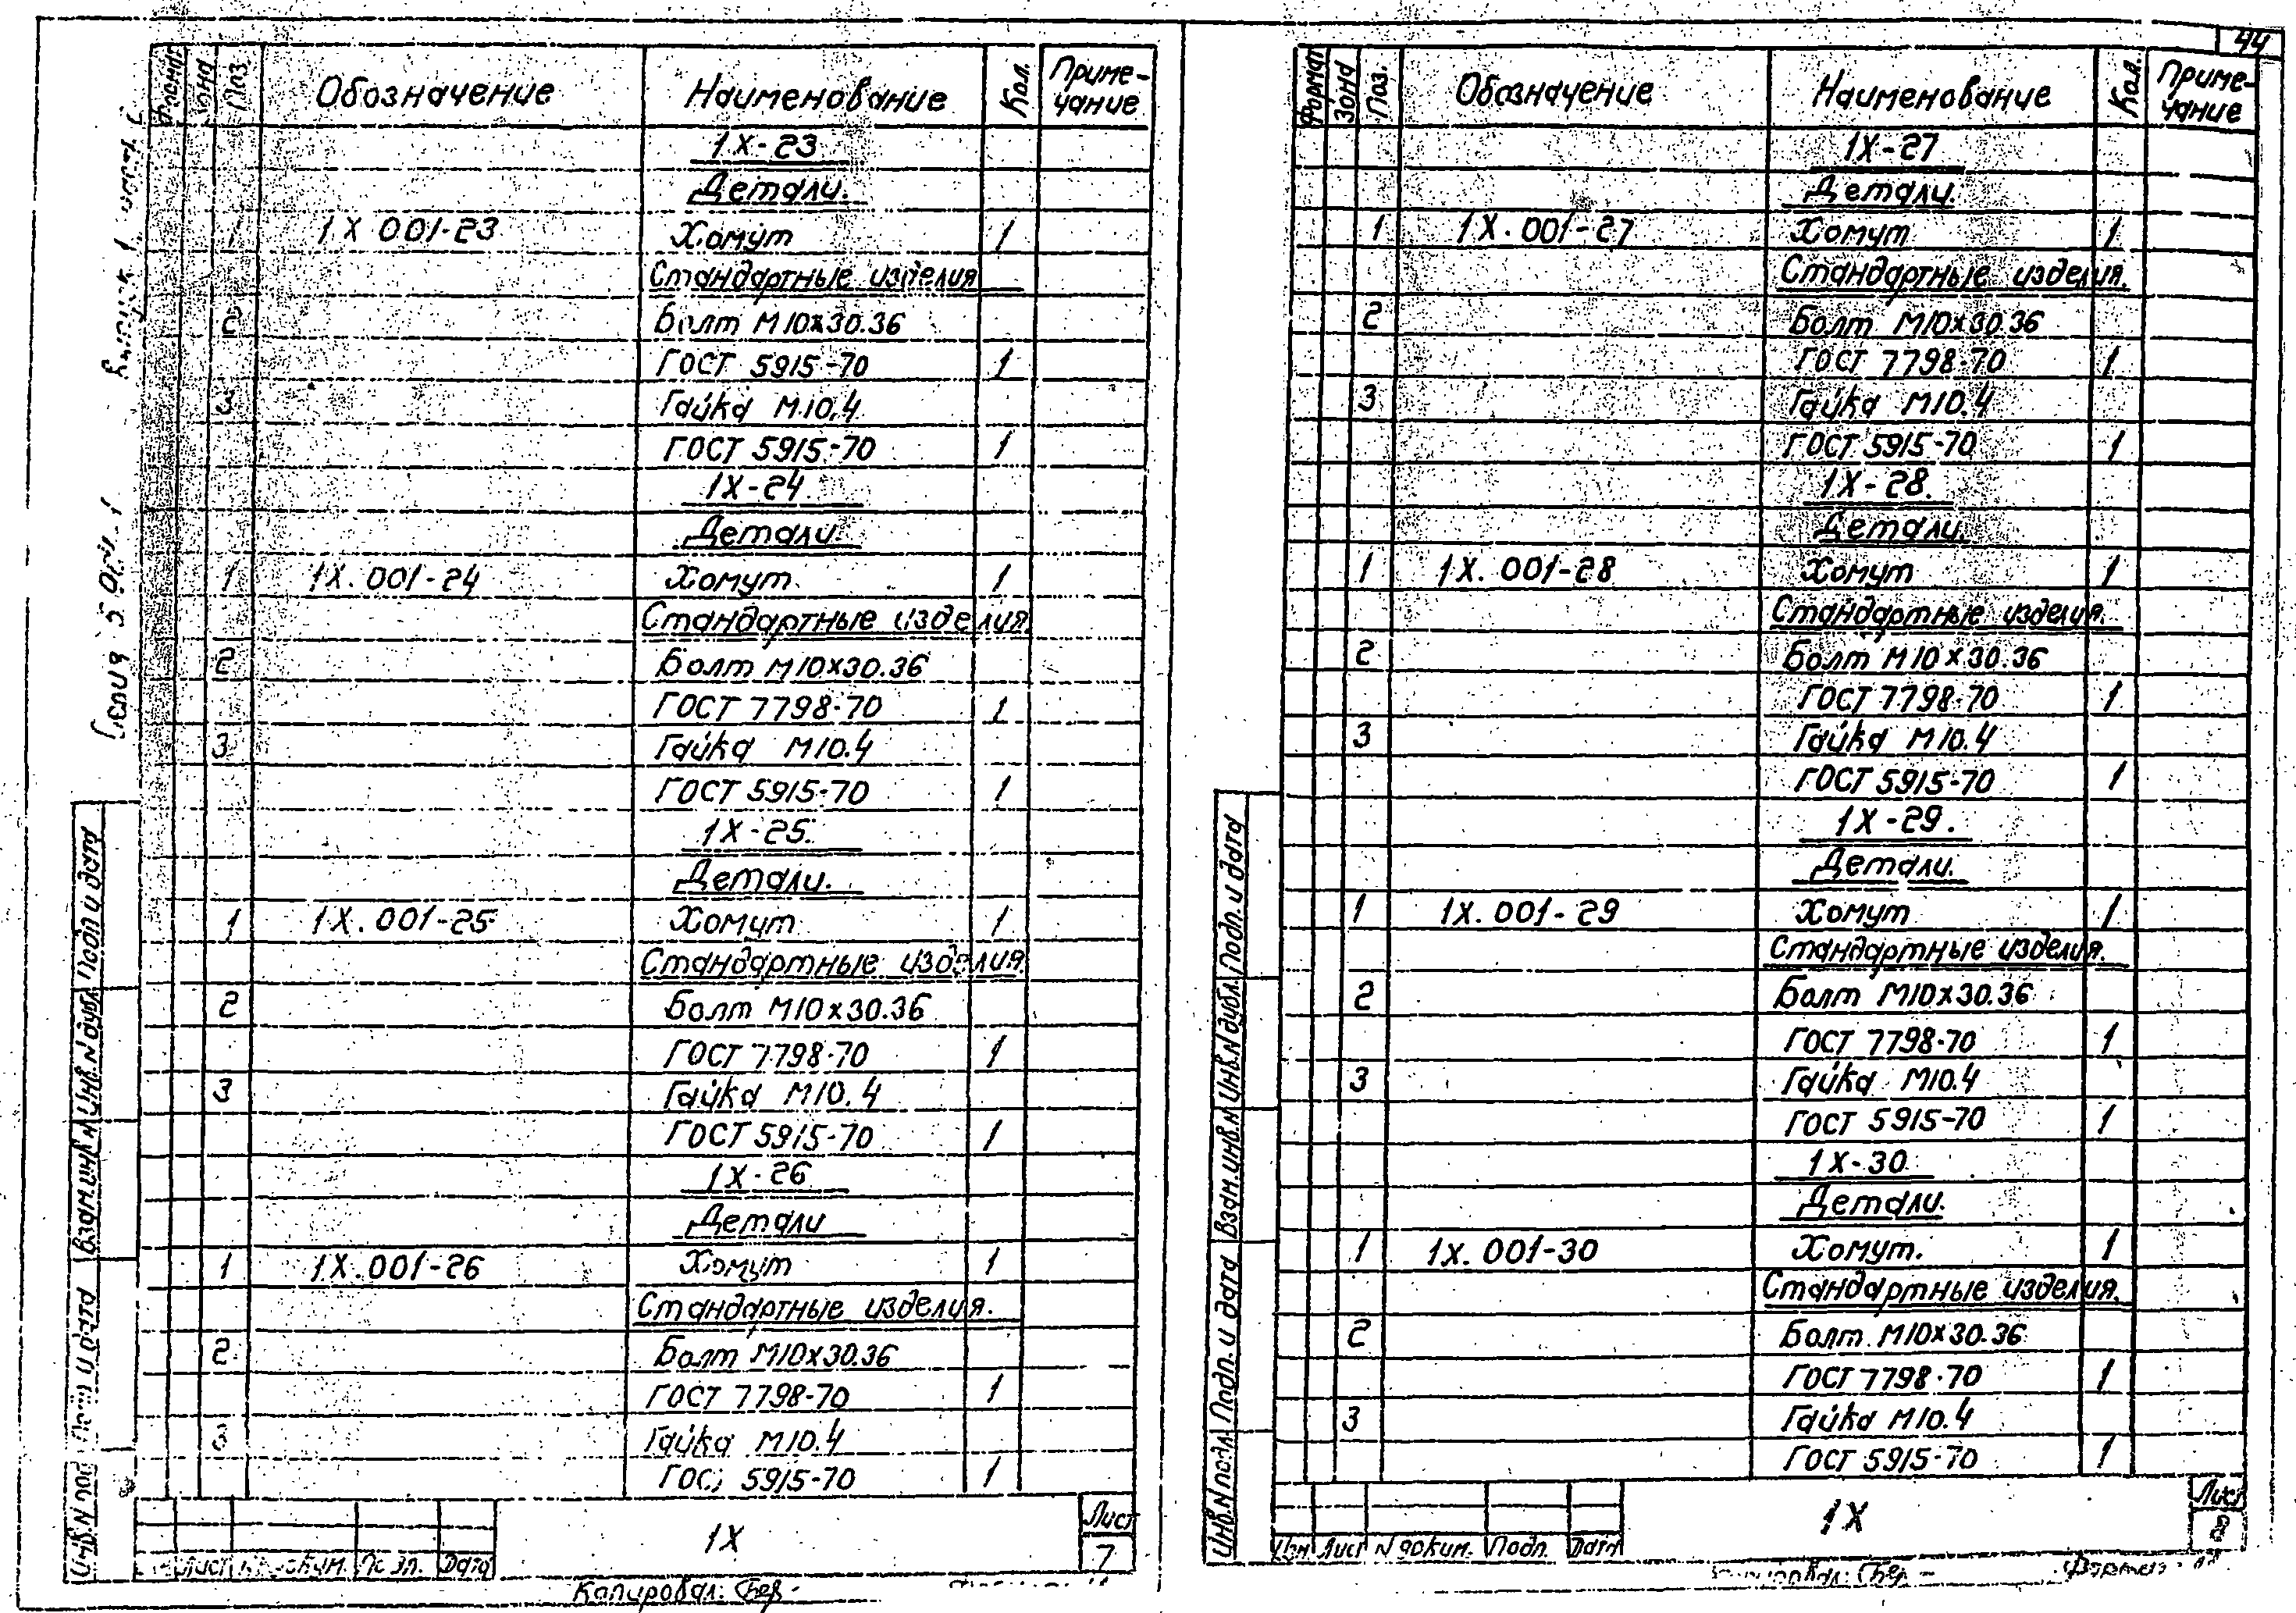 44
Формат Зона Поз. Обозначение Наименование Кол. Приме-
чание
1Х-23
Детали.
1 1Х 001-23 Хомут 1
Стандартные изделия
2 Болт М10х30.36
ГОСТ 5915-70 1
3 Гайка М10.4
ГОСТ 5915-70 1
1Х-24
Детали.
1 1Х. 001-24 Хомут. 1
Стандартные изделия.
2 Болт М10х30.36
ГОСТ 7798-70 1
3 Гайка М10.4
ГОСТ 5915-70 1
1Х-25.
Детали.
1 1Х. 001-25 Хомут 1
Стандартные изделия.
2 Болт М10х30.36
ГОСТ 7798-70 1
3 Гайка М10.4
ГОСТ 5915-70 1
1Х-26
Детали
1 1Х.001-26 Хомут 1
Стандартные изделия.
2 Болт М10х30.36
ГОСТ 7798-70 1
3 Гайка М10.4
5915-70 1
Лист
1Х
7
Лист Дата
Копировал:
Серия 5.
выпуск 1
Подп и дата
Инв.N дубл.
Взам.инв.N
и дата
Инв.N
Формат Зона Поз. Обозначение Наименование Кол. Приме-
чание
1Х-27
Детали.
1 1Х.001-27 Хомут 1
Стандартные изделия.
2 Болт М10х30.36
ГОСТ 7798-70 1
3 Гайка М10.4
ГОСТ 5915-70 1
1Х-28.
Детали.
1 1Х. 001-28 Хомут 1
Стандартные изделия.
2 Болт М10х30.36
ГОСТ 7798-70 1
3 Гайка М10.4
ГОСТ 5915-70 1
1Х-29.
Детали.
1 1Х. 001-29 Хомут 1
Стандартные изделия.
2 Болт М10х30.36
ГОСТ 7798-70 1
3 Гайка М10.4
ГОСТ 5915-70 1
1Х-30
Детали.
1 1Х. 001-30 Хомут. 1
Стандартные изделия.
2 Болт М10х30.36
ГОСТ 7798-70 1
3 Гайка М10.4
ГОСТ 5915-70 1
Лист
1Х
8
Изм Лист N докум. Подп. Дата
Формат
Подп. и дата
Инв.N дубл.
Взам.инв.N
Подп. и дата
Инв.N подл.